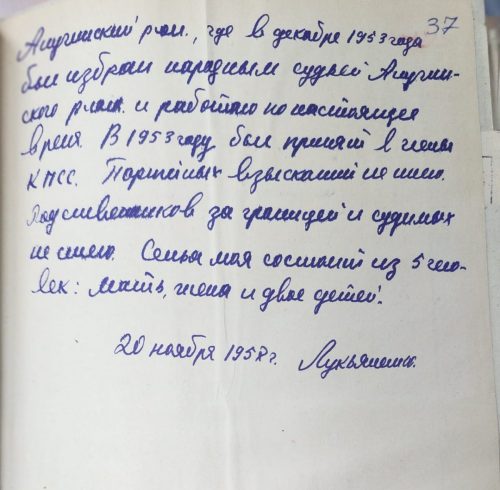 37
Алуч­инский р-он., где в декабре 1953 года
был избран народным судьей
ского р-она. и работаю по настоящее
время. В 1953 году был принят в члены
КПСС. Партийных взысканий не имею.
Родственников за границей и судимых
не имею. Семья моя состоит из 5 чело-
век: мать, жена и двое детей.
20 ноября 1958 г. Лукьяненко.